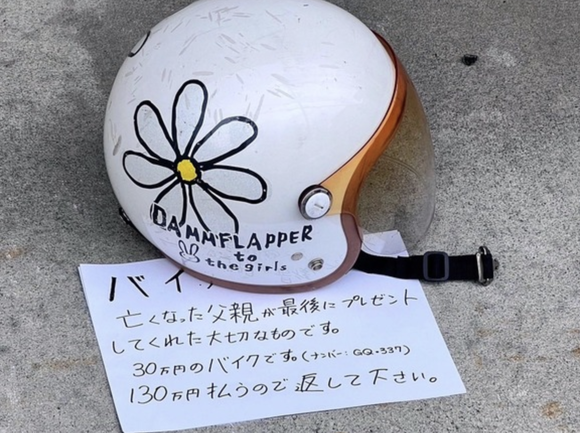 DAMMFLAPPER
to
the girls
バイ
亡くなった父親が最後にプレゼント
してくれた大切なものです。
30万円のバイクです。(ナンバー:GQ・337)
130万円払うので返して下さい。